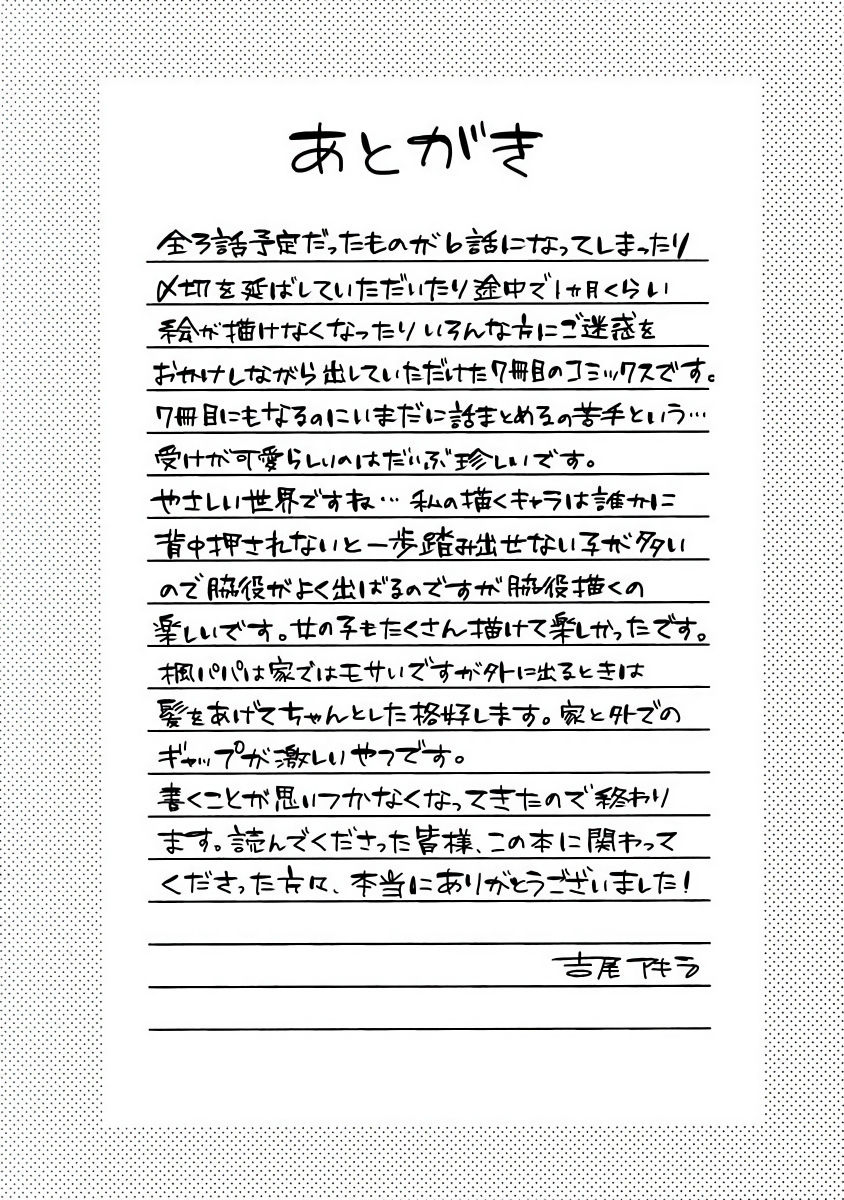 あとがき
全3話予定だったものが6話になってしまったり
〆切を延ばしていただいたり途中で1ヵ月くらい
絵が描けなくなったりいろんな方にご迷惑を
おかけしながら出していただけた7冊目のコミックスです。
7冊目にもなるのにいまだに話まとめるの苦手という…
受けが可愛らしいのはだいぶ珍しいです。
やさしい世界ですね… 私の描くキャラは誰かに
背中押されないと一歩踏み出せない子が多い
ので脇役がよく出ばるのですが脇役描くの
楽しいです。女の子もたくさん描けて楽しかったです。
楓パパは家ではモサいですが外に出るときは
髪をあげてちゃんとした格好します。家と外での
ギャップが激しいやつです。
書くことが思いつかなくなってきたので終わり
ます。読んでくださった皆様、この本に関わって
くださった方々、本当にありがとうございました!
吉尾アキラ